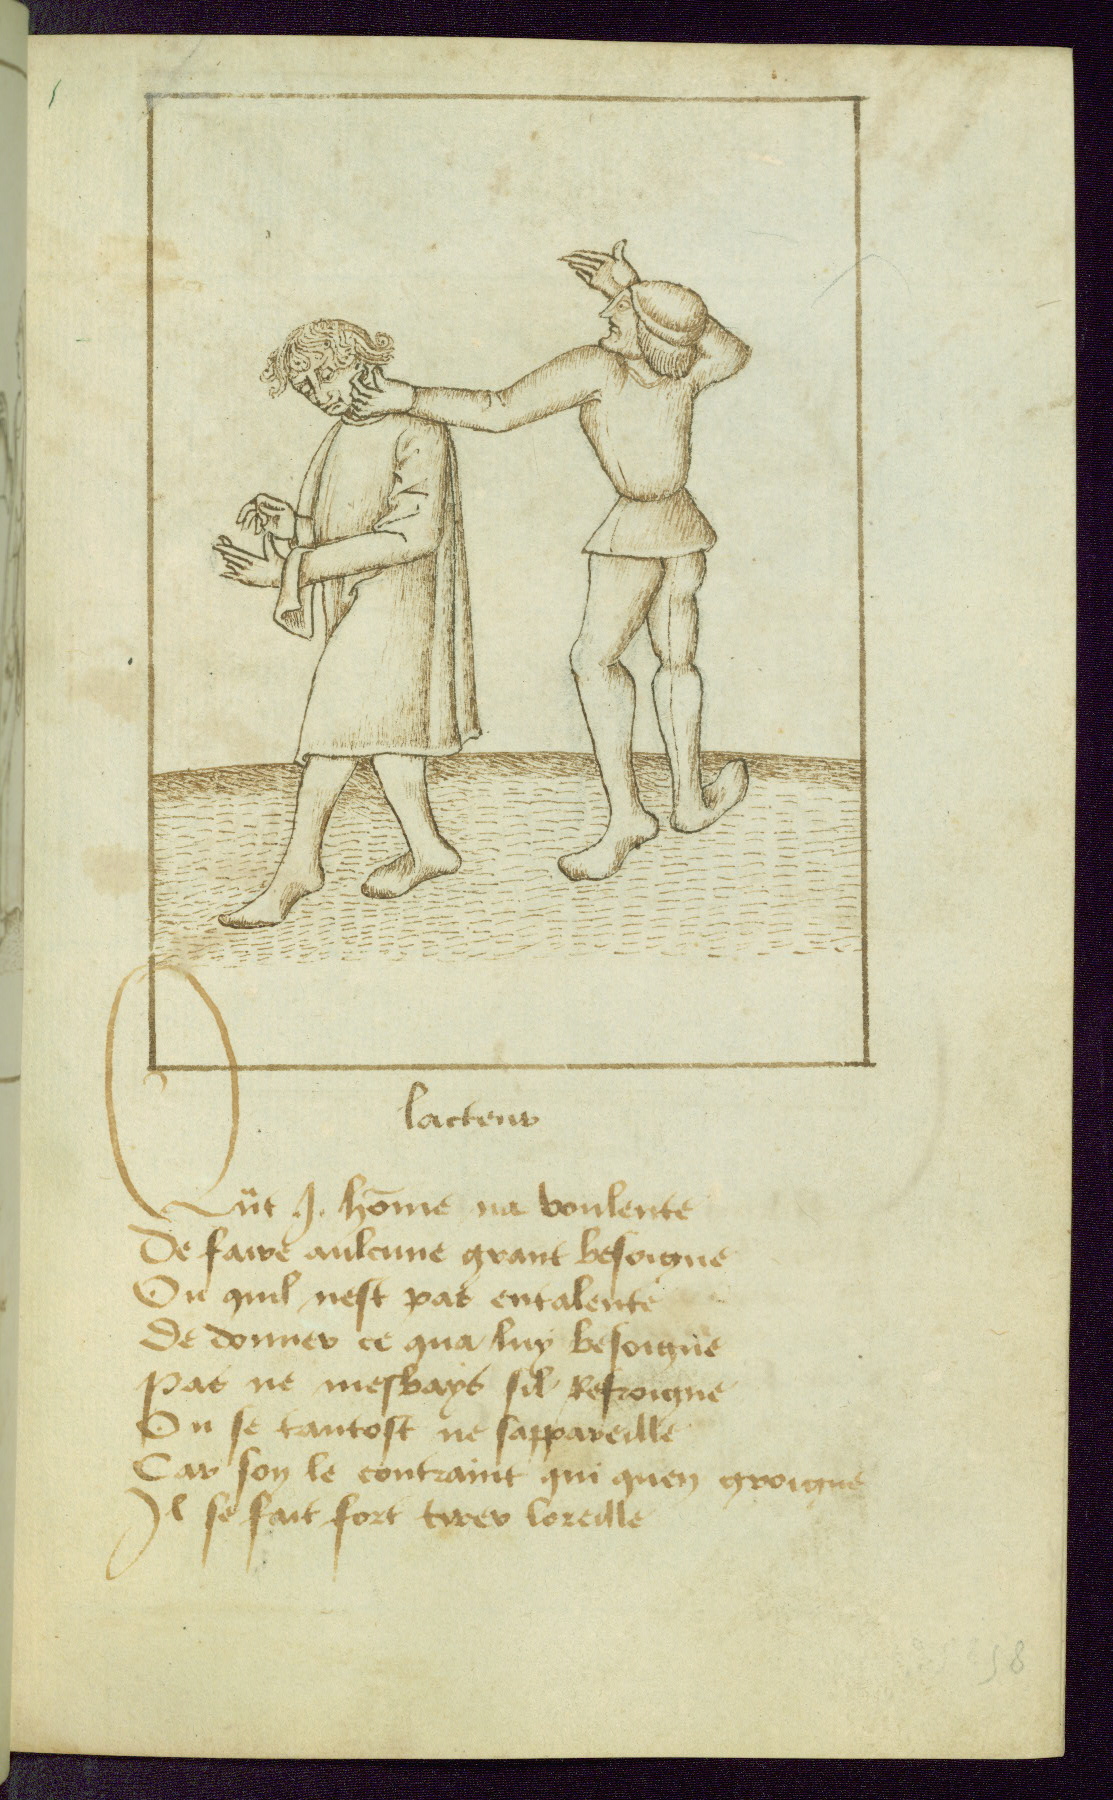 lacteur
Qūt .J. hōme na voulente
De faire aulcune grant besoigne
Ou quil nest pas entalente
De donner ce qua luy besoigne
Pas ne mesbays sil Refroigne
Ou se tantost ne sappareille
Car son le contraint qui quen groigne
Il se fait fort tirer loreille
58